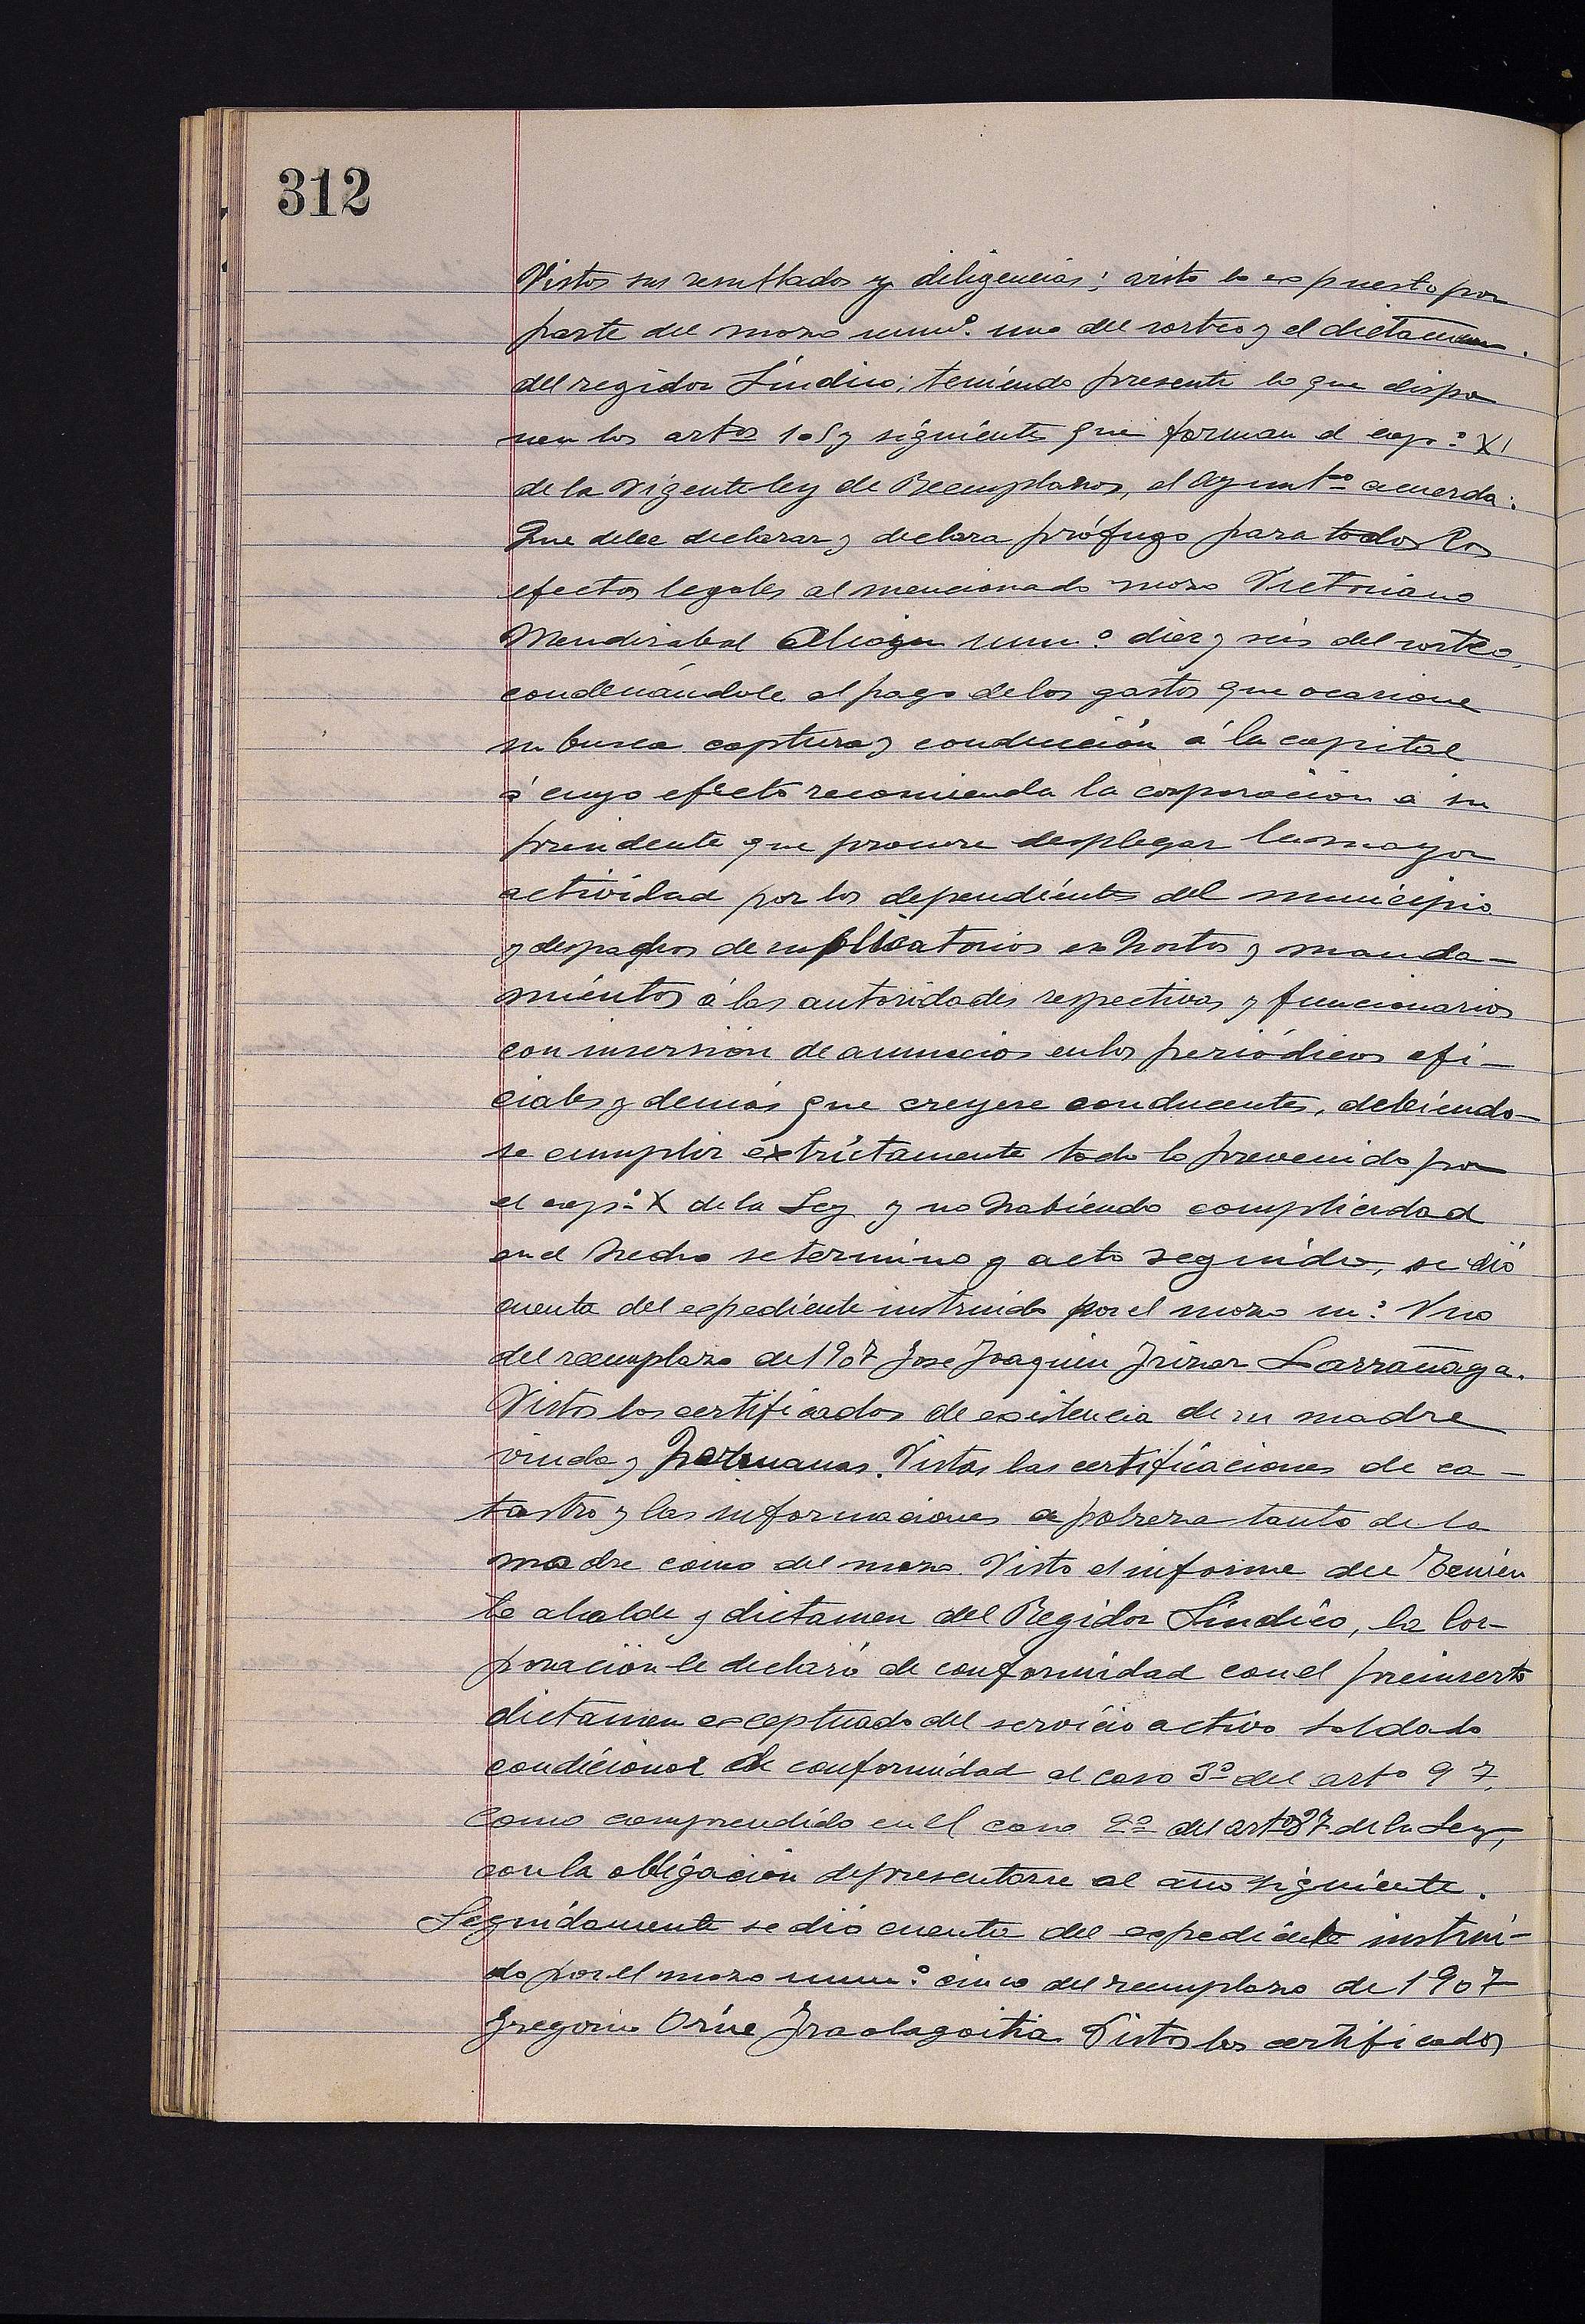 312
Vistos sus resultados y diligencias; visto lo expuesto por
parte del mozo num.º uno del sorteo y el dictamen
del regidor Síndico; teniendo presente lo que dispo
nen los artos 105 y siguiente que forman el cap.º XI
de la vigente ley de Reemplazos, el Ayuntto acuerda:
Que debe declarar y declara prófugo para todos los
efectos legales al mencionado mozo Victoriano
Mendizabal num.º diez y seis del sorteo,
condenándole al pago de los gastos que ocasione
su busca captura y conducción á la capital
á cuyo efecto recomienda la corporación a su
presidente que procure desplegar la mayor
actividad por los dependientes del municipio
y despachos de suplicatorios exhortos y manda-
mientos á las autoridades respectivas y funcionarios
con inserción de anuncios en los periódicos ofi-
ciales y demás que creyere conducentes, debiendo-
se cumplir extrictamente todo lo prevenido por
el cap.º X de la Ley y no habiendo complicidad
en el hecho se termino y acto seguido, se dió
cuenta del expediente instruido por el mozo n.º Uno
del reemplazo de 1907 Jose Joaquin Irizar Larrañaga.
Vistos los certificados de existencia de su madre
viuda y hermanas. Vistas las certificaciones de ca-
tastro y las informaciones de pobreza tanto de la
madre como del mozo. Visto el informe del Tenien
te alcalde y dictamen del Regidor Síndico, la Cor-
poración le declaró de conformidad con el preinserto
dictamen exceptuado del servicio activo soldado
condicional de conformidad al caso 3º del arto 97,
como comprendido en el caso 2º del arto 87 de la Ley,
con la obligación de presentarse al año siguiente.
Seguidamente se dió cuenta del expediente instrui-
do por el mozo num.º cinco del reemplazo de 1907
Gregorio Orúe Iraolagoitia Vistos los certificados